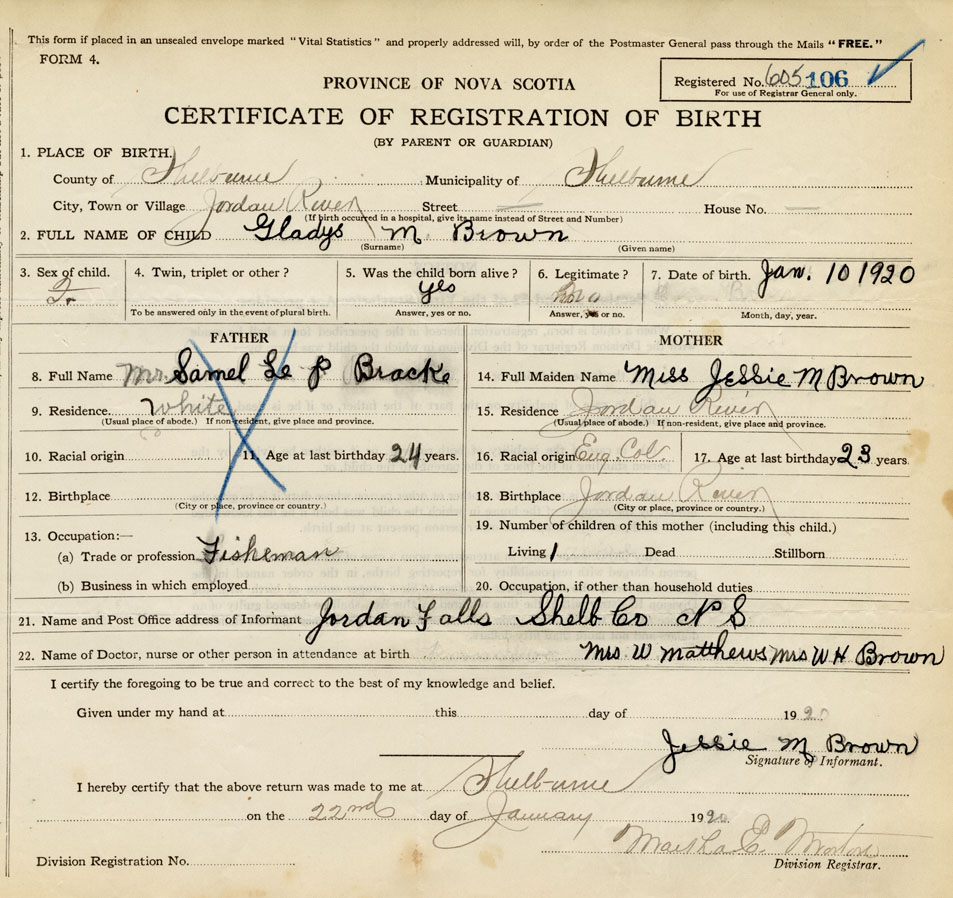 This form if placed in an unsealed envelope marked "Vital Statistics" and properly addressed will, by order of the Postmaster General pass through the Mails "FREE."
FORM 4.
Registered No. 605 106
For use of Registrar General only.
PROVINCE OF NOVA SCOTIA
CERTIFICATE OF REGISTRATION OF BIRTH
(BY PARENT OR GUARDIAN)
1. PLACE OF BIRTH.
County of Shelburne Municipality of Shelburne
City, Town or Village Jordan River Street House No.
(If birth occurred in a hospital, give its name instead of Street and Number)
2. FULL NAME OF CHILD Gladys M. Brown
(Surname) (Given name)
3. Sex of child. 4. Twin, triplet or other? 5. Was the child born alive? 6. Legitimate? 7. Date of birth. Jan. 10 1920
F. yes
To be answered only in the event of plural birth. Answer, yes or no. Answer, yes or no. Month, day, year.
FATHER MOTHER
8. Full Name Mr. Samel Le P Bracke 14. Full Maiden Name Miss Jessie M Brown
9. Residence. White 15. Residence Jordan River
(Usual place of abode.) If non-resident, give place and province. (Usual place of abode.) If non-resident, give place and province.
10. Racial origin 11. Age at last birthday 24 years. 16. Racial origin Eng. Col. 17. Age at last birthday 23 years.
12. Birthplace 18. Birthplace Jordan River
(City or place, province or country.) (City or place, province or country.)
13. Occupation:— 19. Number of children of this mother (including this child.)
(a) Trade or profession Fisheman Living 1 Dead Stillborn
(b) Business in which employed 20. Occupation, if other than household duties
21. Name and Post Office address of Informant Jordan Falls Shelb Co N S
22. Name of Doctor, nurse or other person in attendance at birth Mrs. W Matthews Mrs W H Brown
I certify the foregoing to be true and correct to the best of my knowledge and belief.
Given under my hand at this day of 1920
Jessie M Brown
Signature of Informant.
I hereby certify that the above return was made to me at Shelburne
on the 22nd day of January 1920
Martha
Division Registration No. Division Registrar.